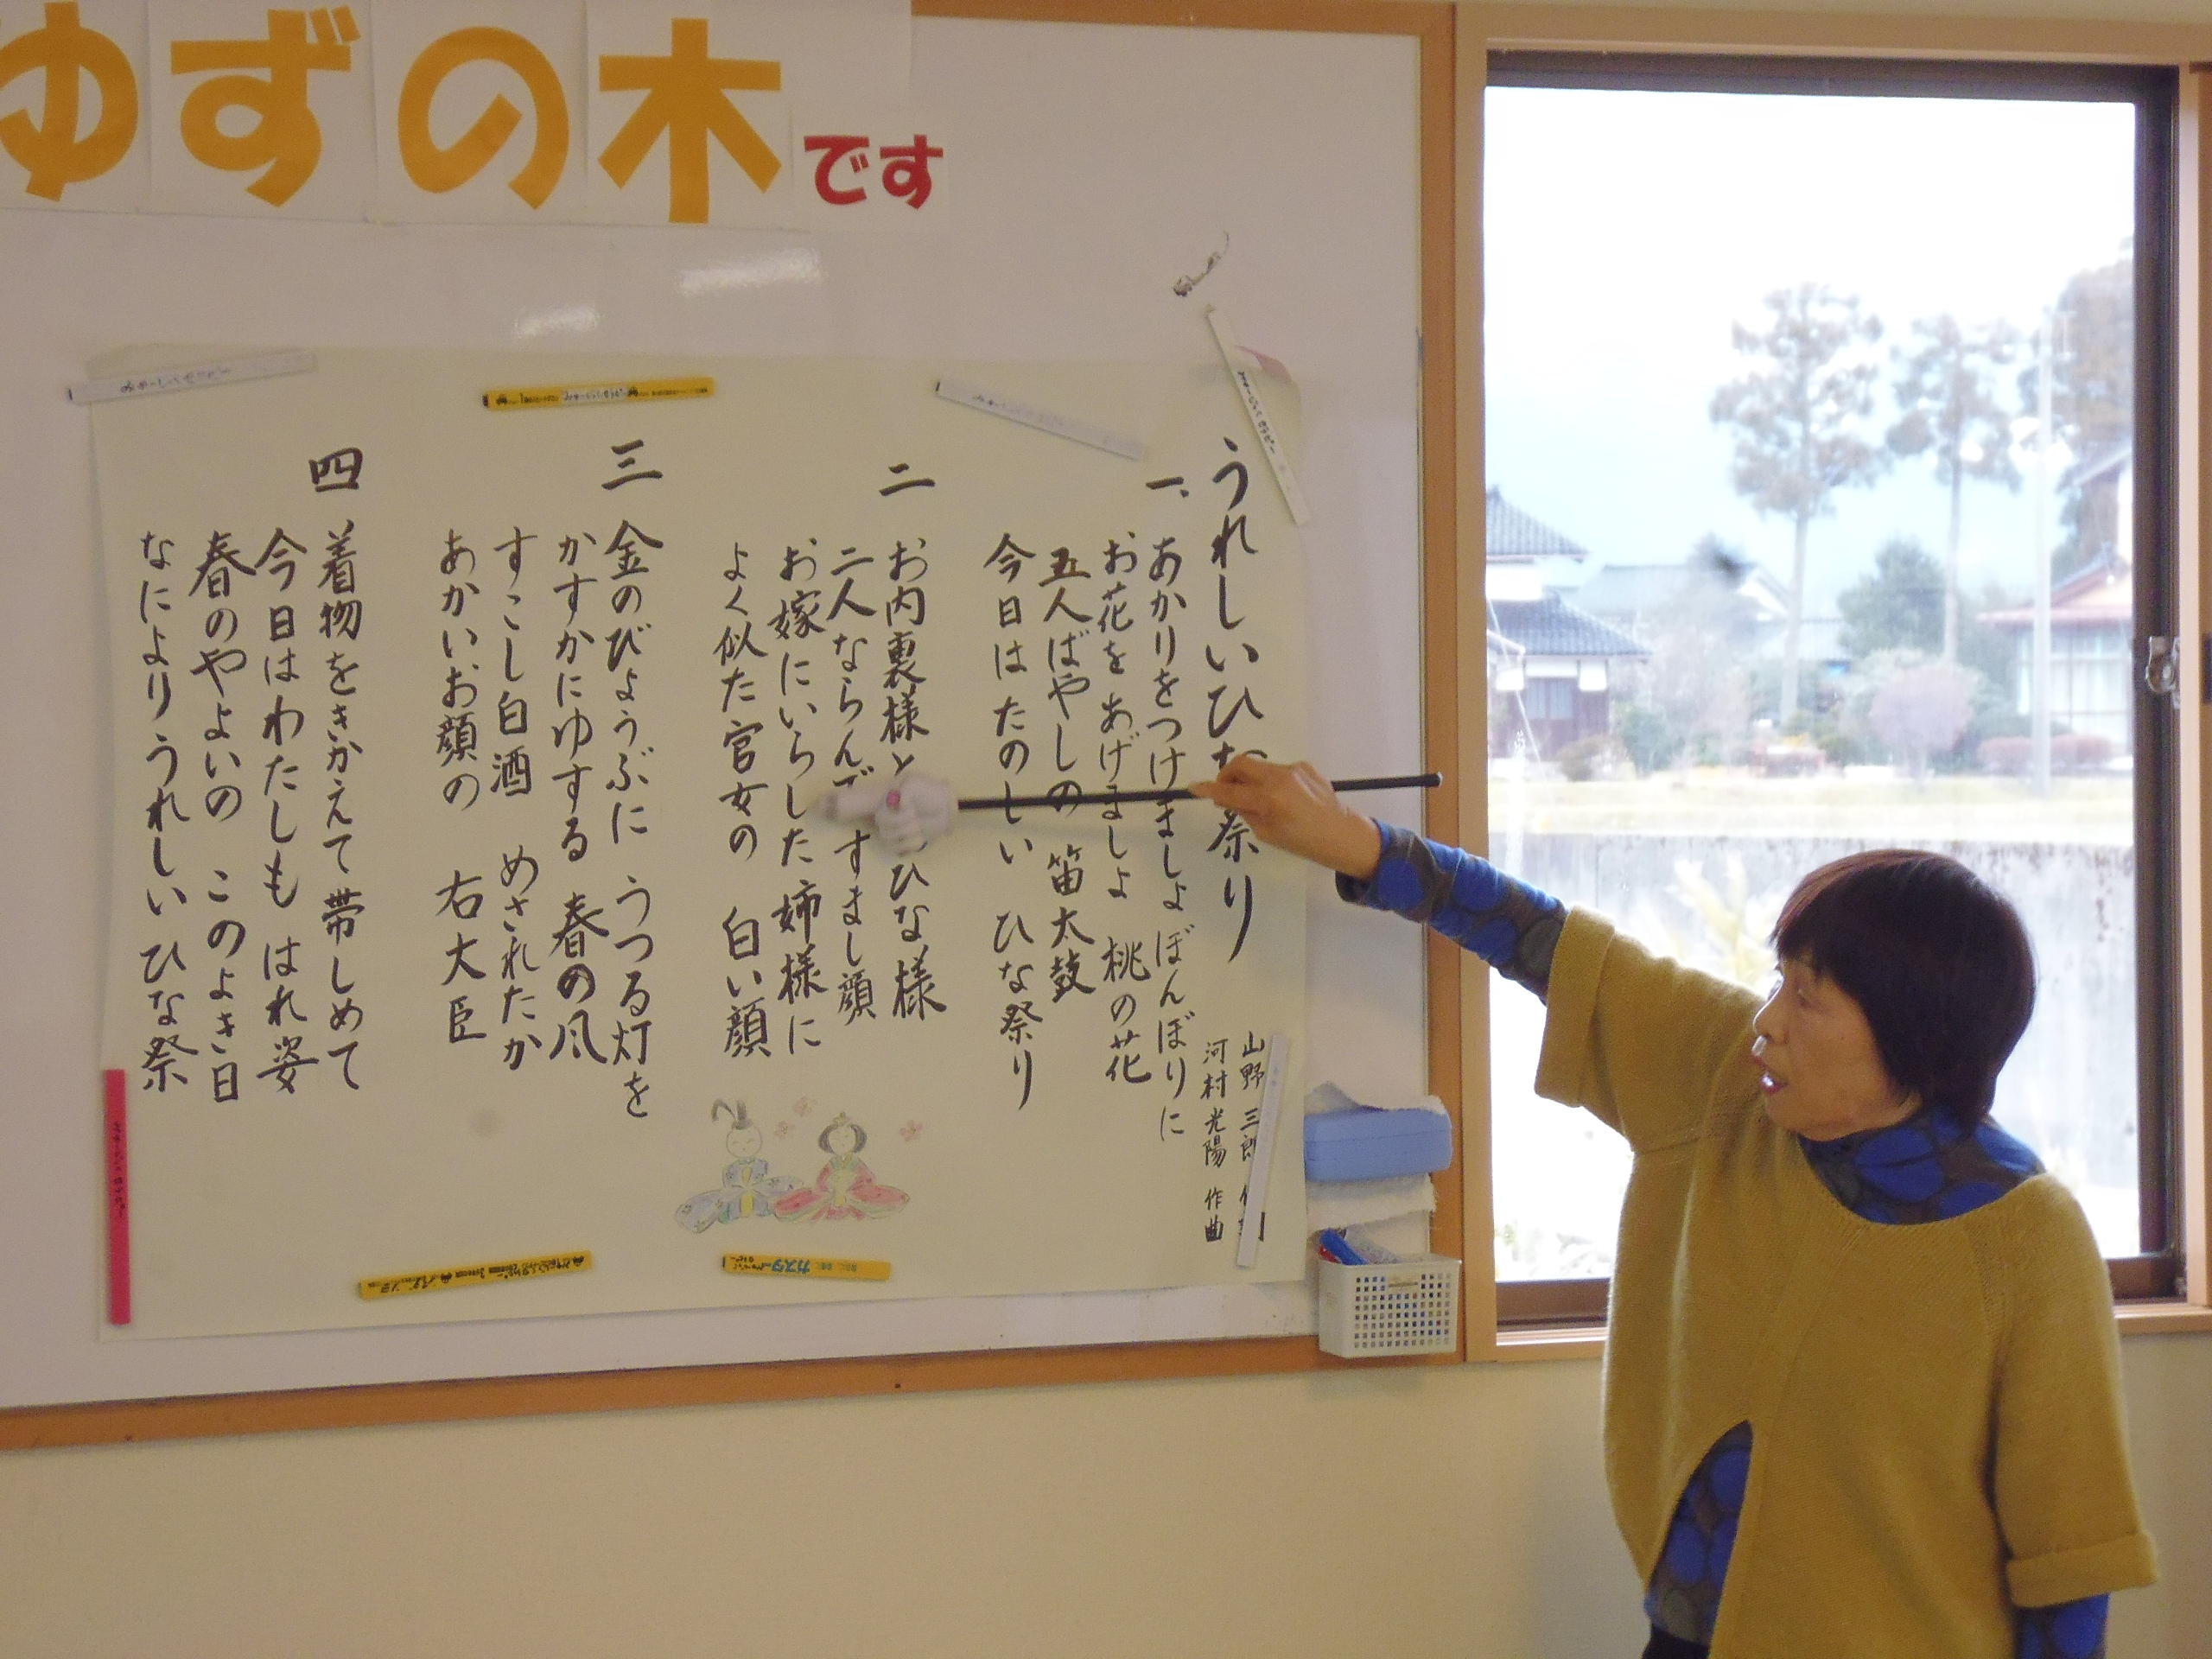 ゆずの木です
うれしいひな祭り
山野 三郎
河村光陽 作曲
一、あかりをつけましょ ぼんぼりに
お花を あげましょ 桃の花
五人ばやしの 笛太鼓
今日はたのしい ひな祭り
二 お内裏様と ひな様
二人ならんで すまし顔
お嫁にいらした 姉様に
よく似た官女の 白い顔
三 金のびょうぶに うつる灯を
かすかにゆする 春の風
すこし白酒 めされたか
あかいお顔の 右大臣
四 着物をきかえて 帯しめて
今日はわたしも はれ姿
春のやよいの このよき日
なによりうれしい ひな祭
カスター